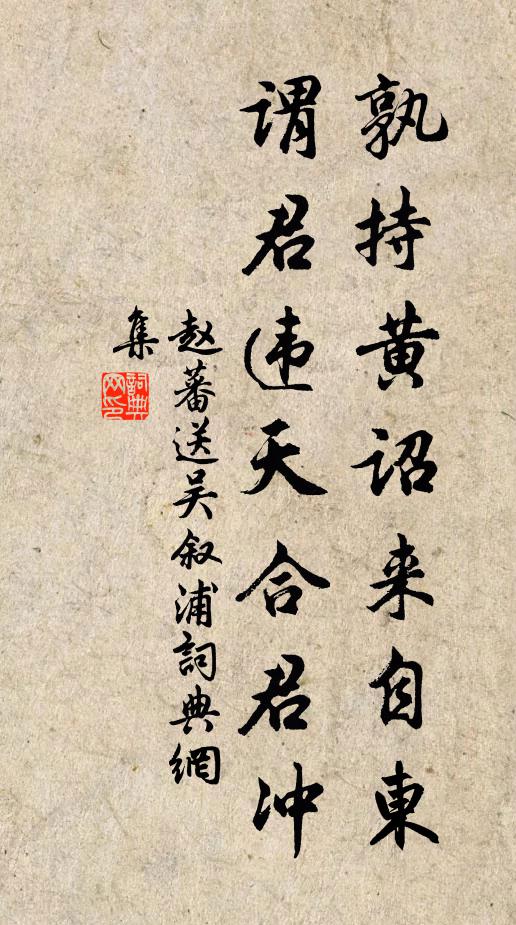 孰持黄詔来自東
谓君违天合君冲
赵蕃送吴叙浦詞典網
集
詞典
网印